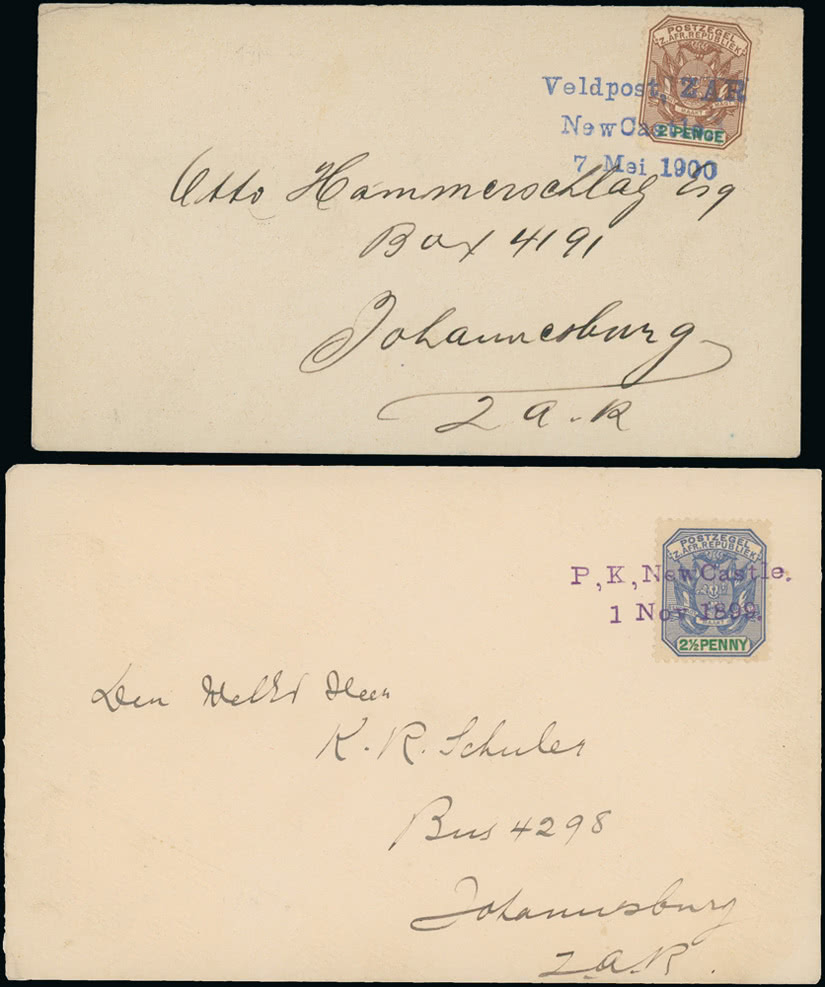 POSTZEGEL
Z. AFR. REPUBLIEK
MAAKT MAGT
2 PENCE
Veldpost, ZAR
NewCastle
7 Mei 1900
Otto Hammerschlag Esq
Box 4191
Johannesburg
Z a. R
POSTZEGEL
Z. AFR. REPUBLIEK
MAAKT
2½ PENNY
P,K,NewCastle.
1 Nov 1899.
Den WelEd Heer
K. R. Schuler
Bus 4298
Johannesburg
Z.a.R.